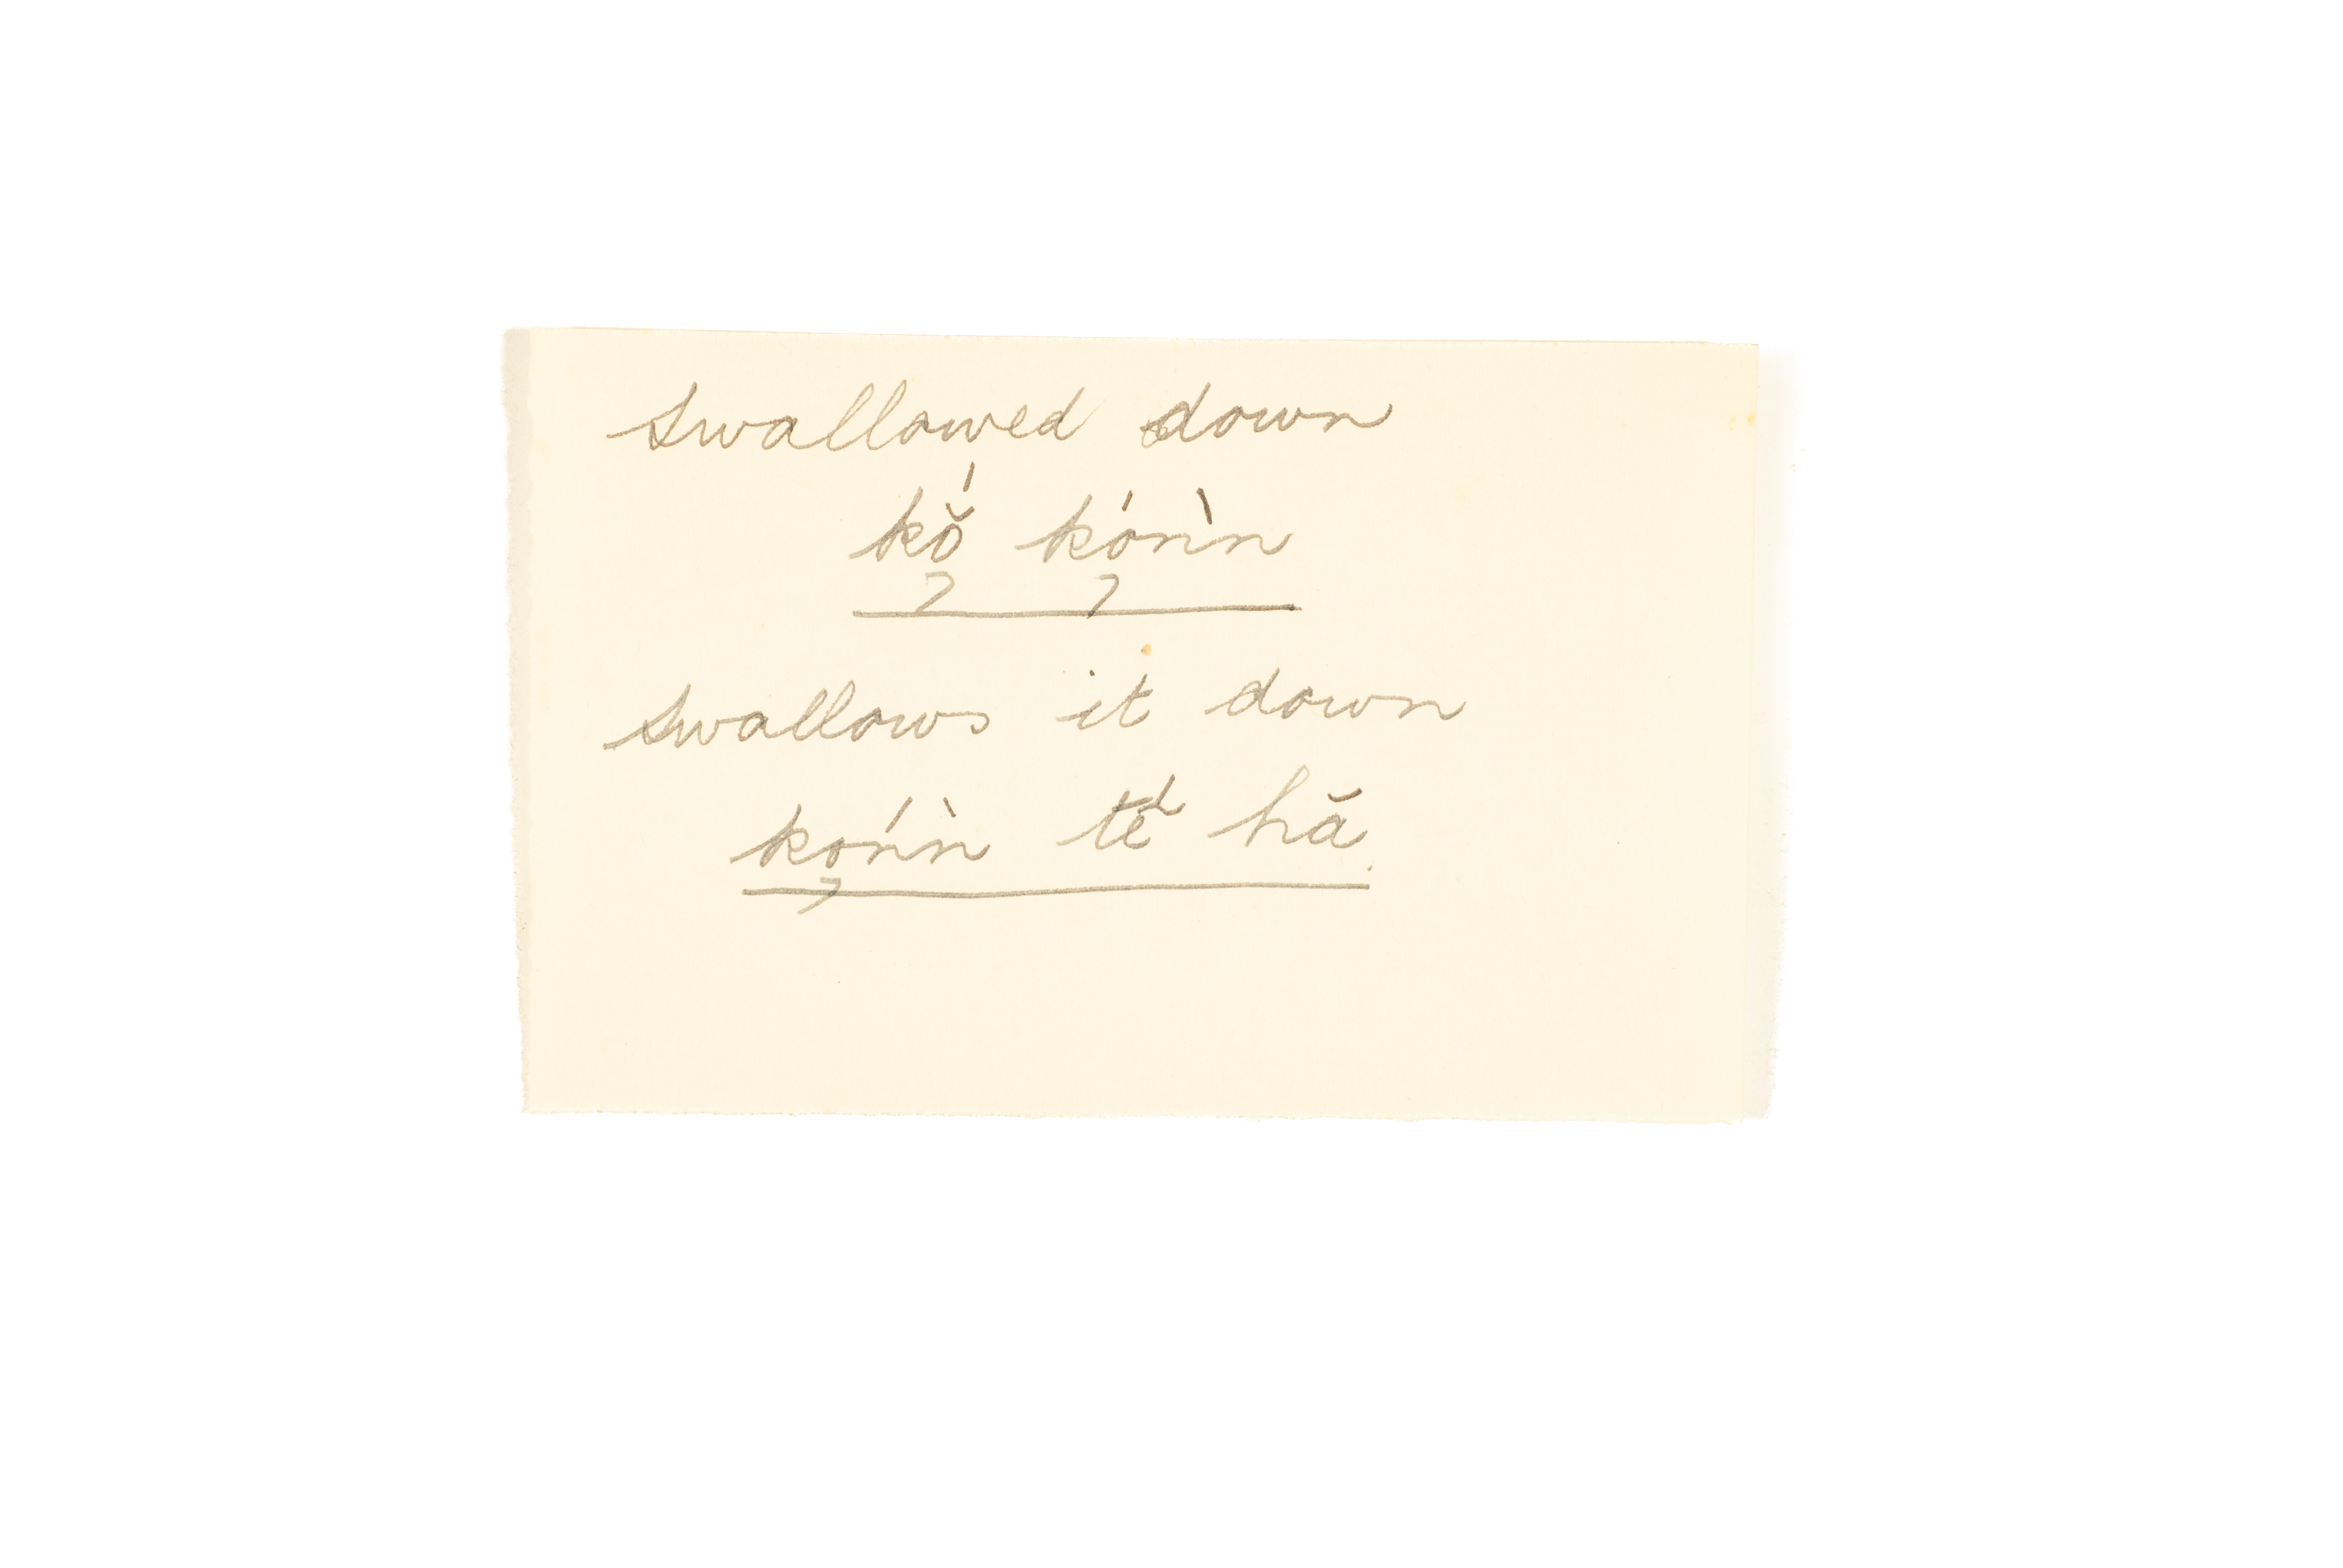 swallowed down
kŏ́ kórı̀n
swallows it down
kórı̀n té hă